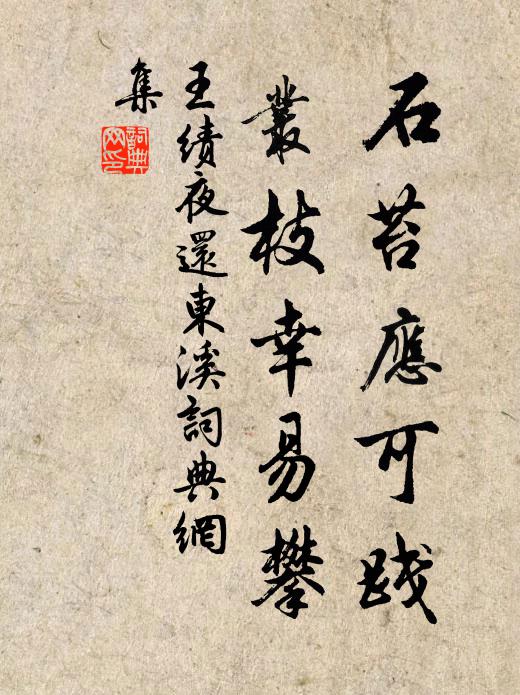 石苔應可踐
叢枝幸易攀
王績夜還東溪詞典網
集
詞典
网印